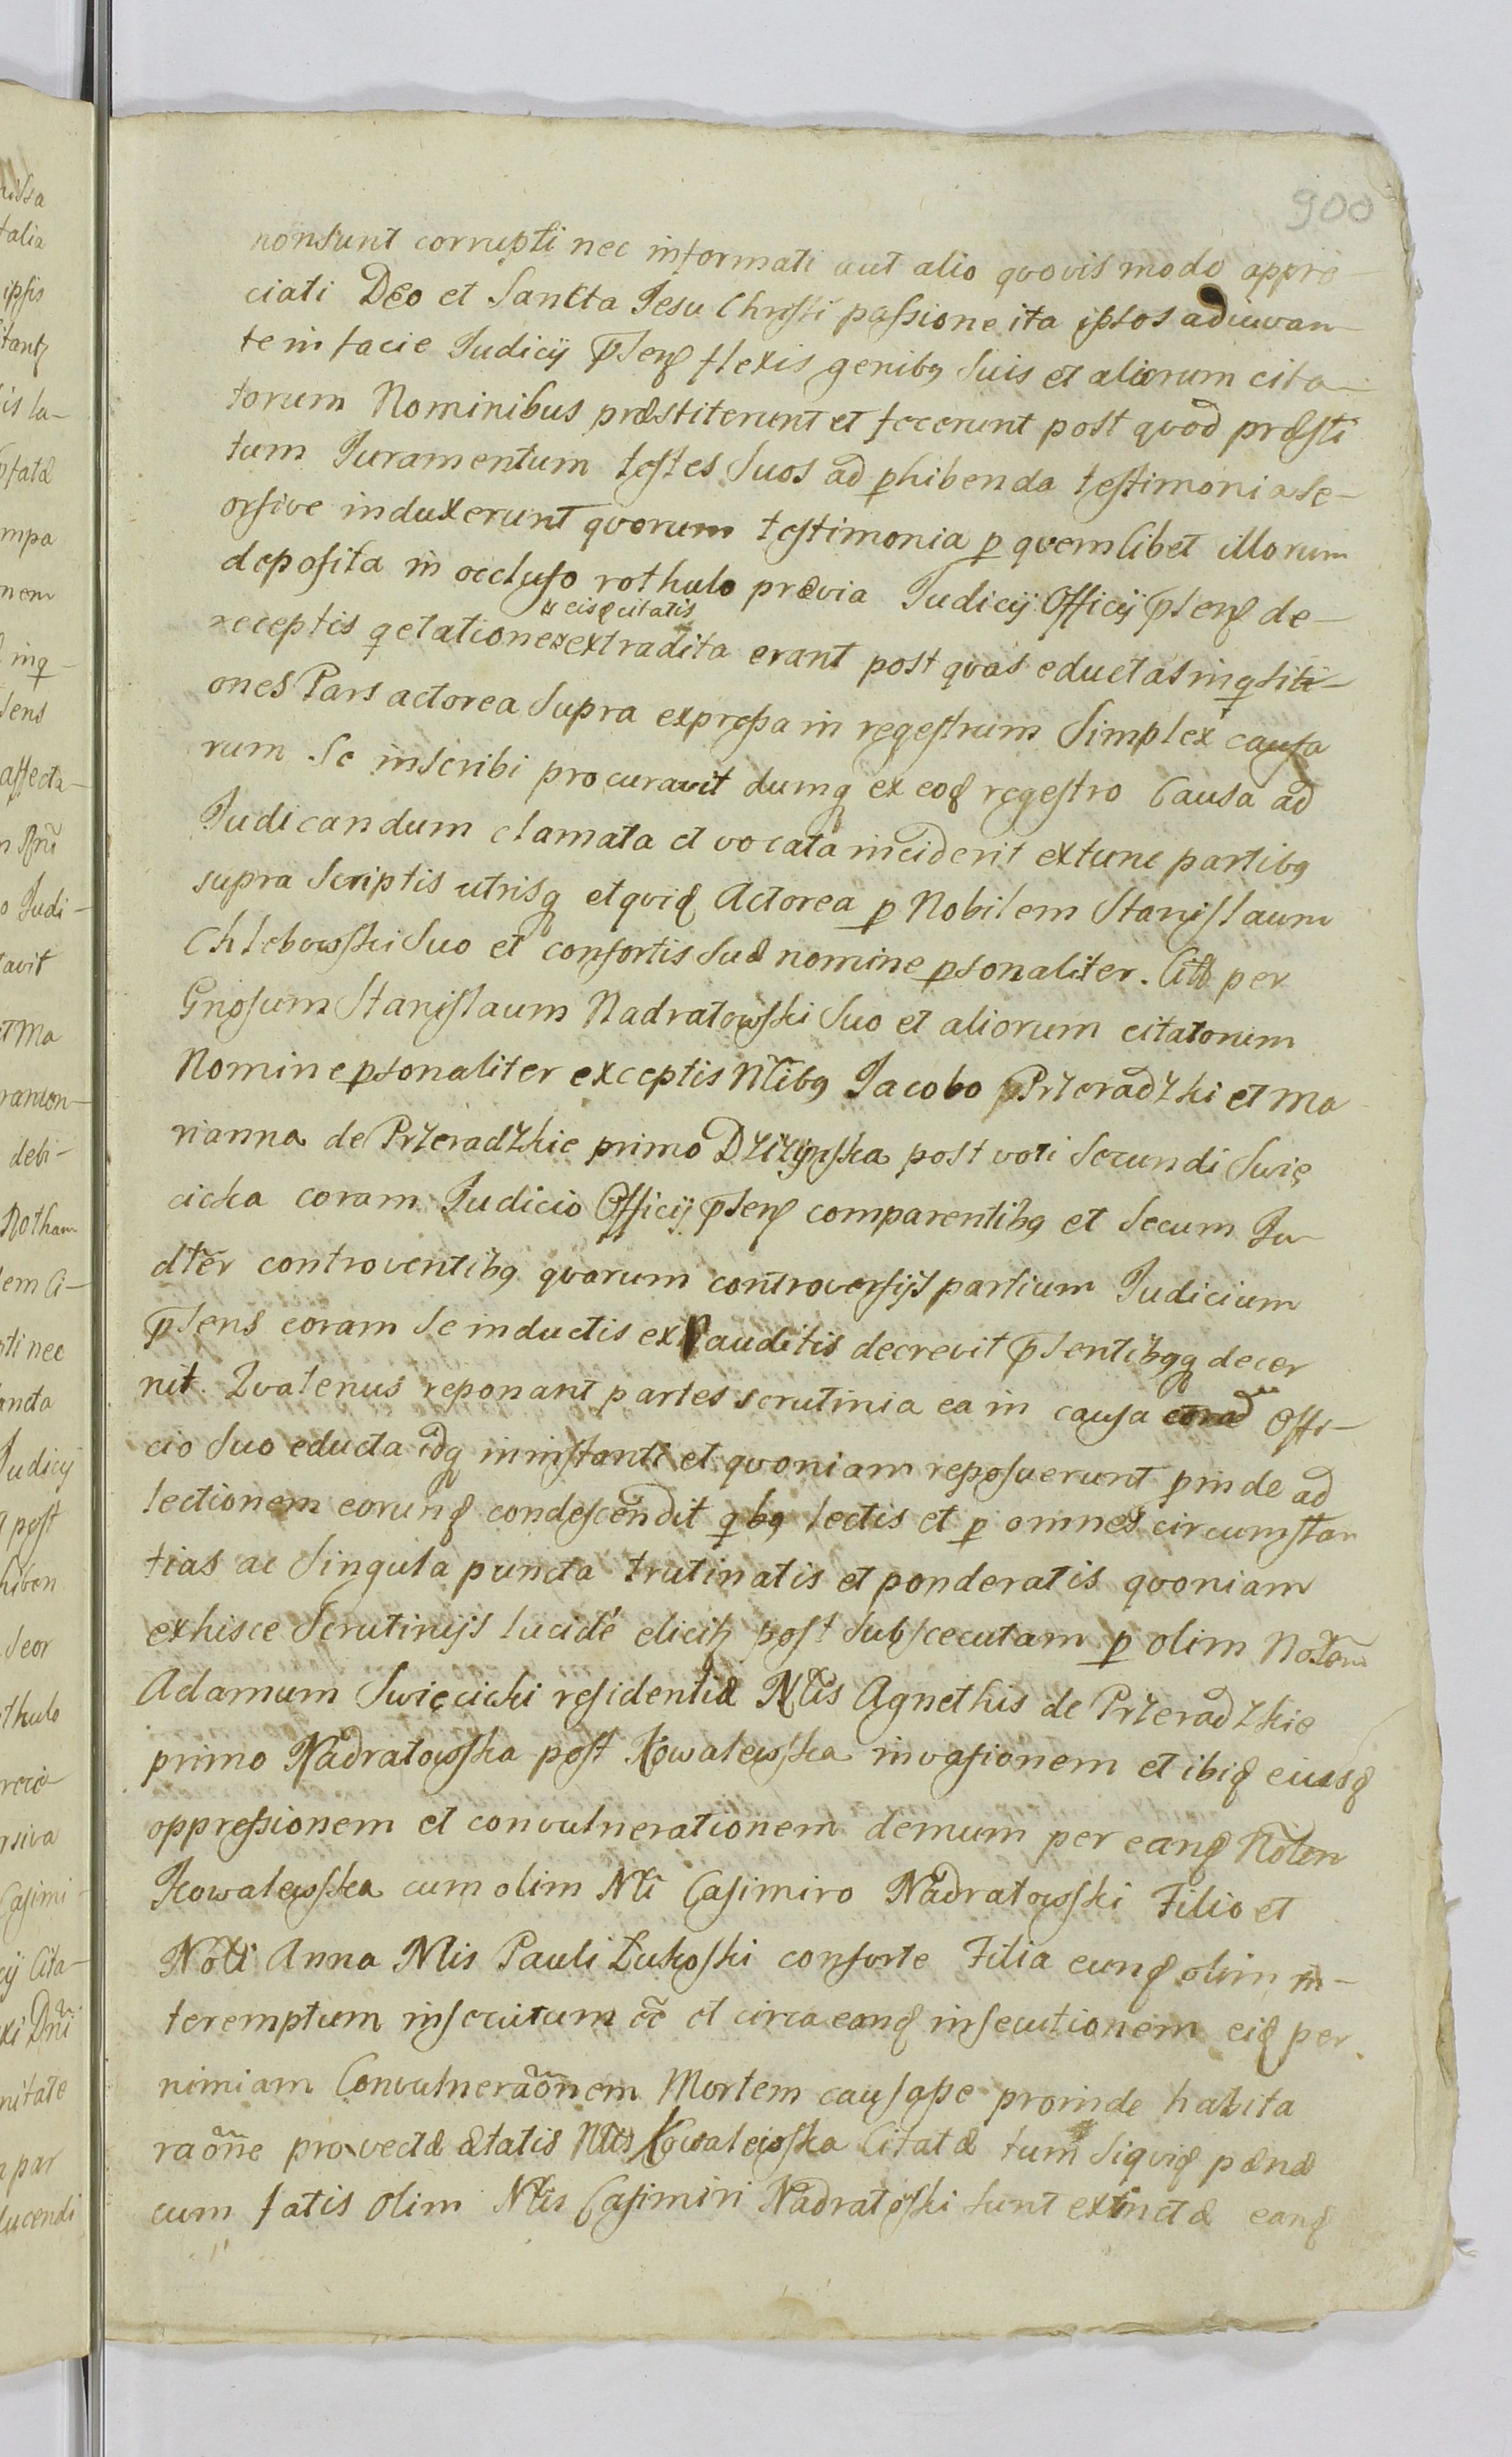 900
non sunt corrupti nec informati aut alio quovis modo appre
ciati Deo et Sancta Jesu Christi passione ita ipsos adiuvan
te in facie Judicij p̄sen̄ flexis genibq suis et aliorum cita
torum Nominibus præstiterunt et fecerunt post quod præsti
tum Juramentum testes Suos ad p̱hibenda testimonia se-
orsive induxerunt quorum testimonia p̱ quemlibet illorum
deposita in occluso rothulo prævia Judicij Officij p̄sen̄ de-
cisq citatis
receptis q̱etatione extradita erant post quas eductas inq̱siti-
ones Pars actorea Supra expressa in regestrum Simplex causa
rum Se inscribi procuravit dumq ex eod regestro Causa ad
Judicandum clamata et vocata inciderit extunc partibq
supra Scriptis utrisq et quid Actorea p̱ Nobilem Stanislaum
Chlebowski Suo et consortis Suæ nomine p̱sonaliter. Citt per
Gnosum Stanislaum Nadratowski Suo et aliorum citatorum
Nomine p̱sonaliter exceptis Nlibq Jacobo Przeradzki et Ma
rianna de Przeradzkie primo Dzizynska post voti Secundi Swię
cicka coram Judicio Officij p̄sen̄ comparentibq et Secum Ju-
dter controventibq quorum controversijs partium Judicium
p̄sens coram Se inductis ex auditis decrevit p̄sentibqq decer
nit. Quatenus reponant partes scrutinia ea in causa Offi-
cio Suo educta idq in instanti et quoniam reposuerunt p̱inde ad
lectionem eorund condescendit q̱bq lectis et p̱ omnes circumstan
tias ac Singula puncta trutinatis et ponderatis quoniam
exhisce Scrutinijs lucidé elicitz post Subsecutam p̱ olim Noblem
Adamum Swięcicki residentiæ Nlis Agnethis de Przeradzkie
primo Nadratowska post Kowalewska invasionem et ibid eiusd
oppressionem et convulnerationem demum per eand Noblem
Kowalewska cum olim Nli Casimiro Nadratowski Filio et
Nobli Anna Nlis Pauli Zukoski consorte Filia eund olim in-
teremptum insecutum ec̄ et circa eand insecutionem eid per
nimiam Convulneraōnem Mortem causasse proinde habita
raōne provectæ ætatis Nlis Kowalewska Citatæ tum Siquid pænæ
cum fatis olim Nlis Casimiri Nadratoski sunt extinctæ eand